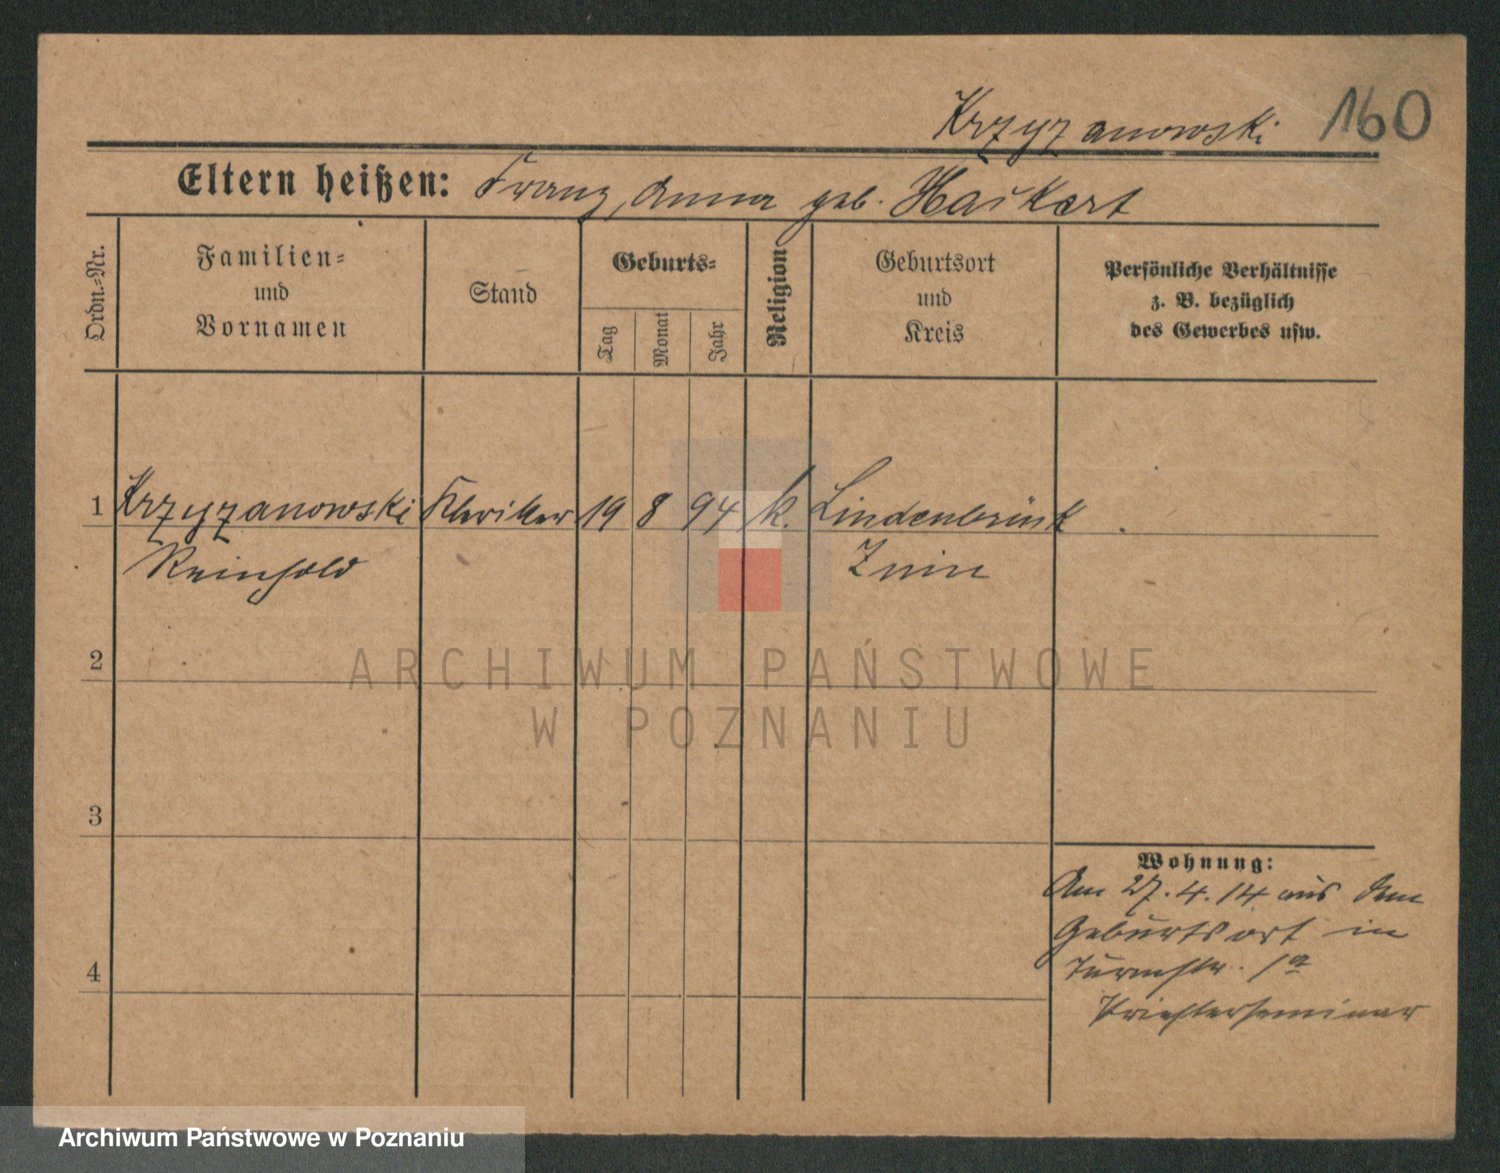 Krzyzanowski 160
Eltern heißen: Franz, Anna geb. Haikert
Ordn.-Nr.
Familien-
und
Vornamen
Stand
Geburts-
Tag
Monat
Jahr
Religion
Geburtsort
und
Kreis
Persönliche Verhältnisse
z. B. bezüglich
des Gewerbes usw.
1 Krzyzanowski Kleriker 19 8 94 k. Lindenbrück
Reinhold Znin
2
3
4
Wohnung:
Am 27.4.14 aus dem
Geburtsort in
Turmstr. 1a
Priesterseminar
ARCHIWUM PAŃSTWOWE
W POZNANIU
Archiwum Państwowe w Poznaniu